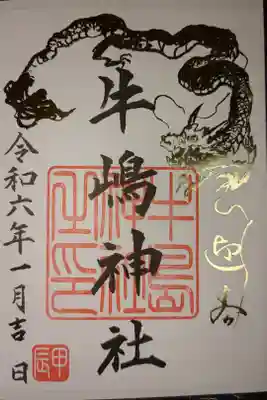 牛嶋神社
牛島
神社
之印
令和六年一月吉日
甲辰